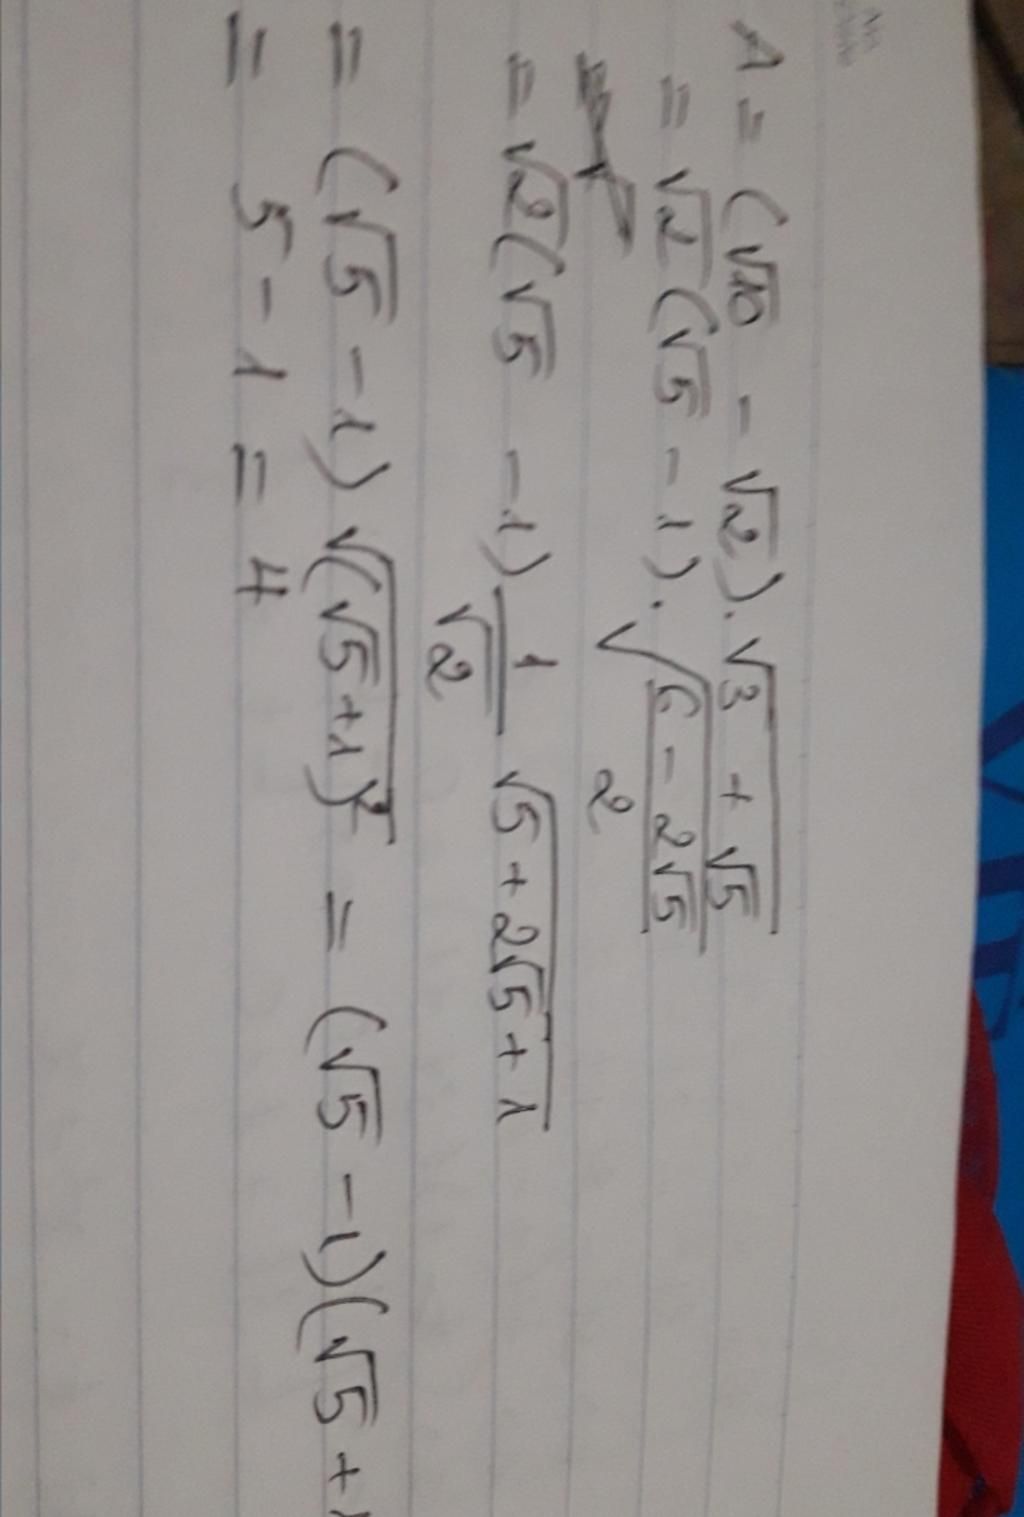 A = (√10 - √2). √(3 + √5)
= √2 (√5 - 1). √((6 - 2√5)/2)
= √2 (√5 - 1) 1/√2 √(5 + 2√5 + 1)
= (√5 - 1) √((√5 + 1)²) = (√5 - 1)(√5 + 1
= 5 - 1 = 4